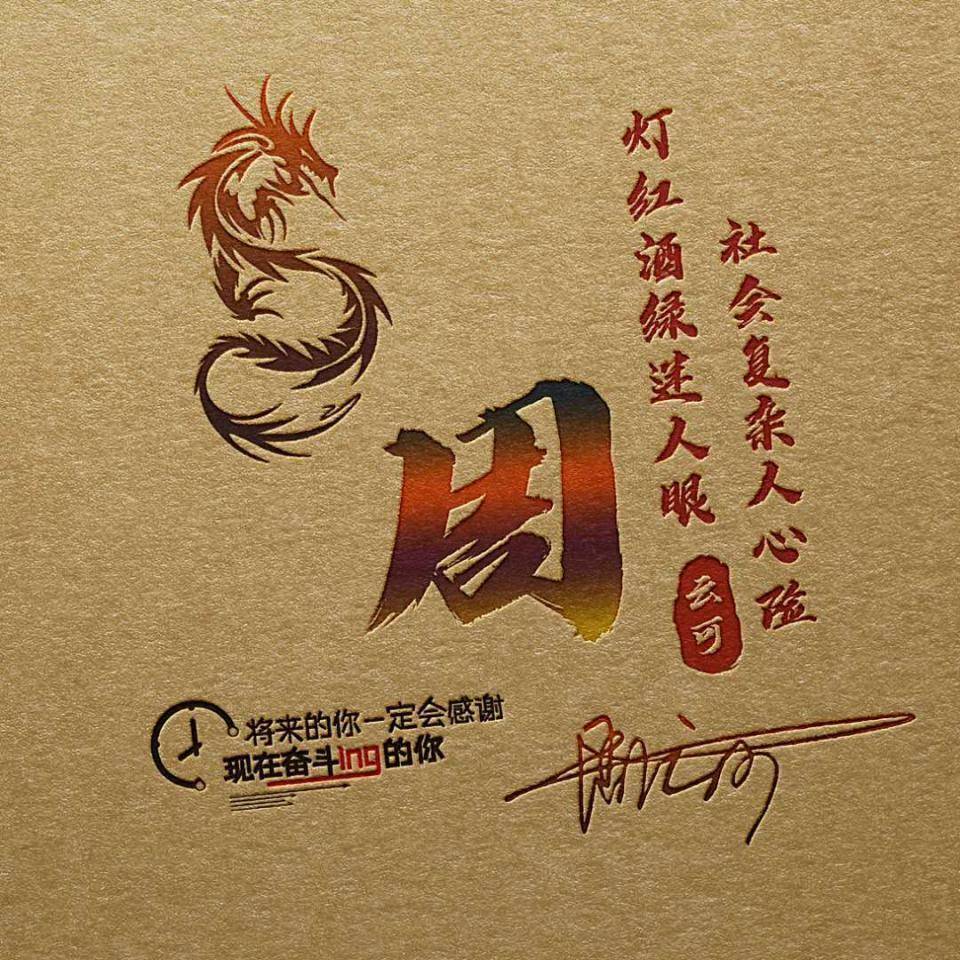 灯红酒绿迷人眼
社会复杂人心险
云可
周
将来的你一定会感谢
现在奋斗ing的你
周云可